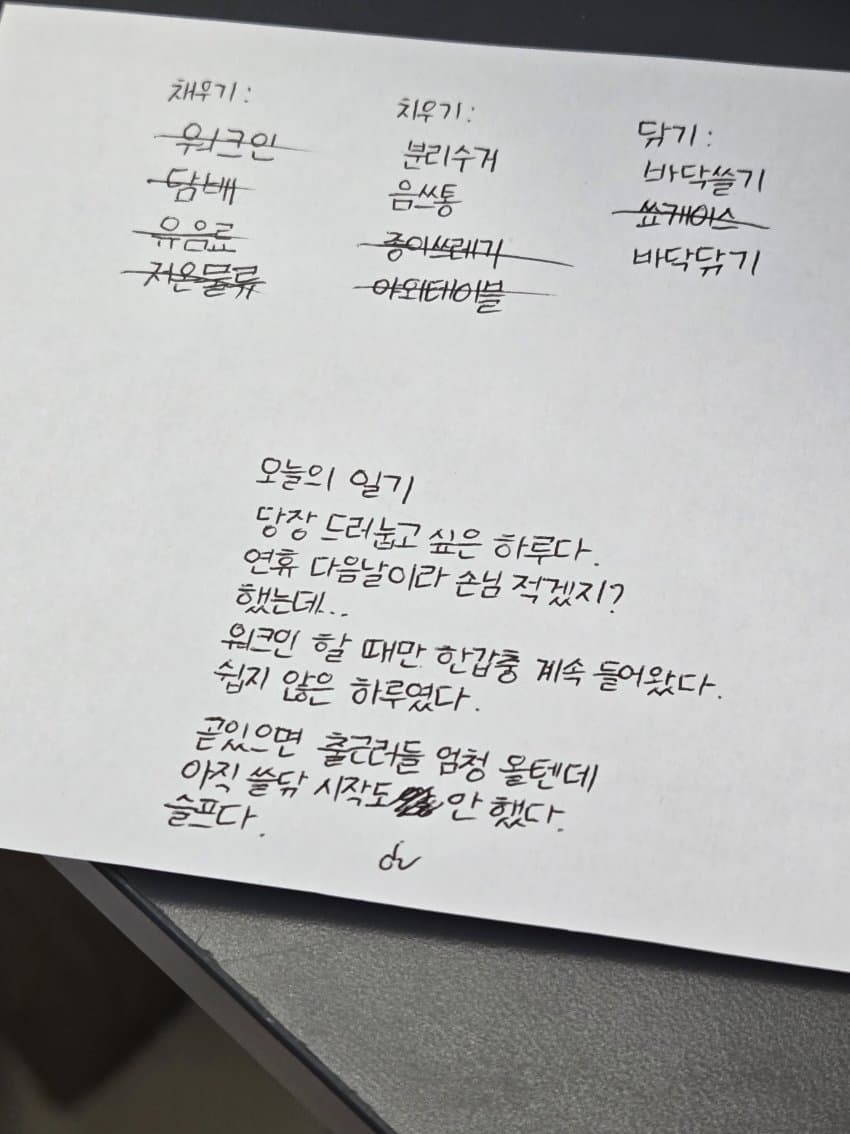 채우기:
워크인
담배
유음료
저온물류
치우기:
분리수거
음쓰통
종이쓰레기
야외테이블
닦기:
바닥쓸기
쑈케이스
바닥닦기
오늘의 일기
당장 드러눕고 싶은 하루다.
연휴 다음날이라 손님 적겠지?
했는데...
워크인 할 때만 한갑충 계속 들어왔다.
쉽지 않은 하루였다.
곧있으면 출근러들 엄청 올텐데
아직 쓸닦 시작도 안 했다.
슬프다.